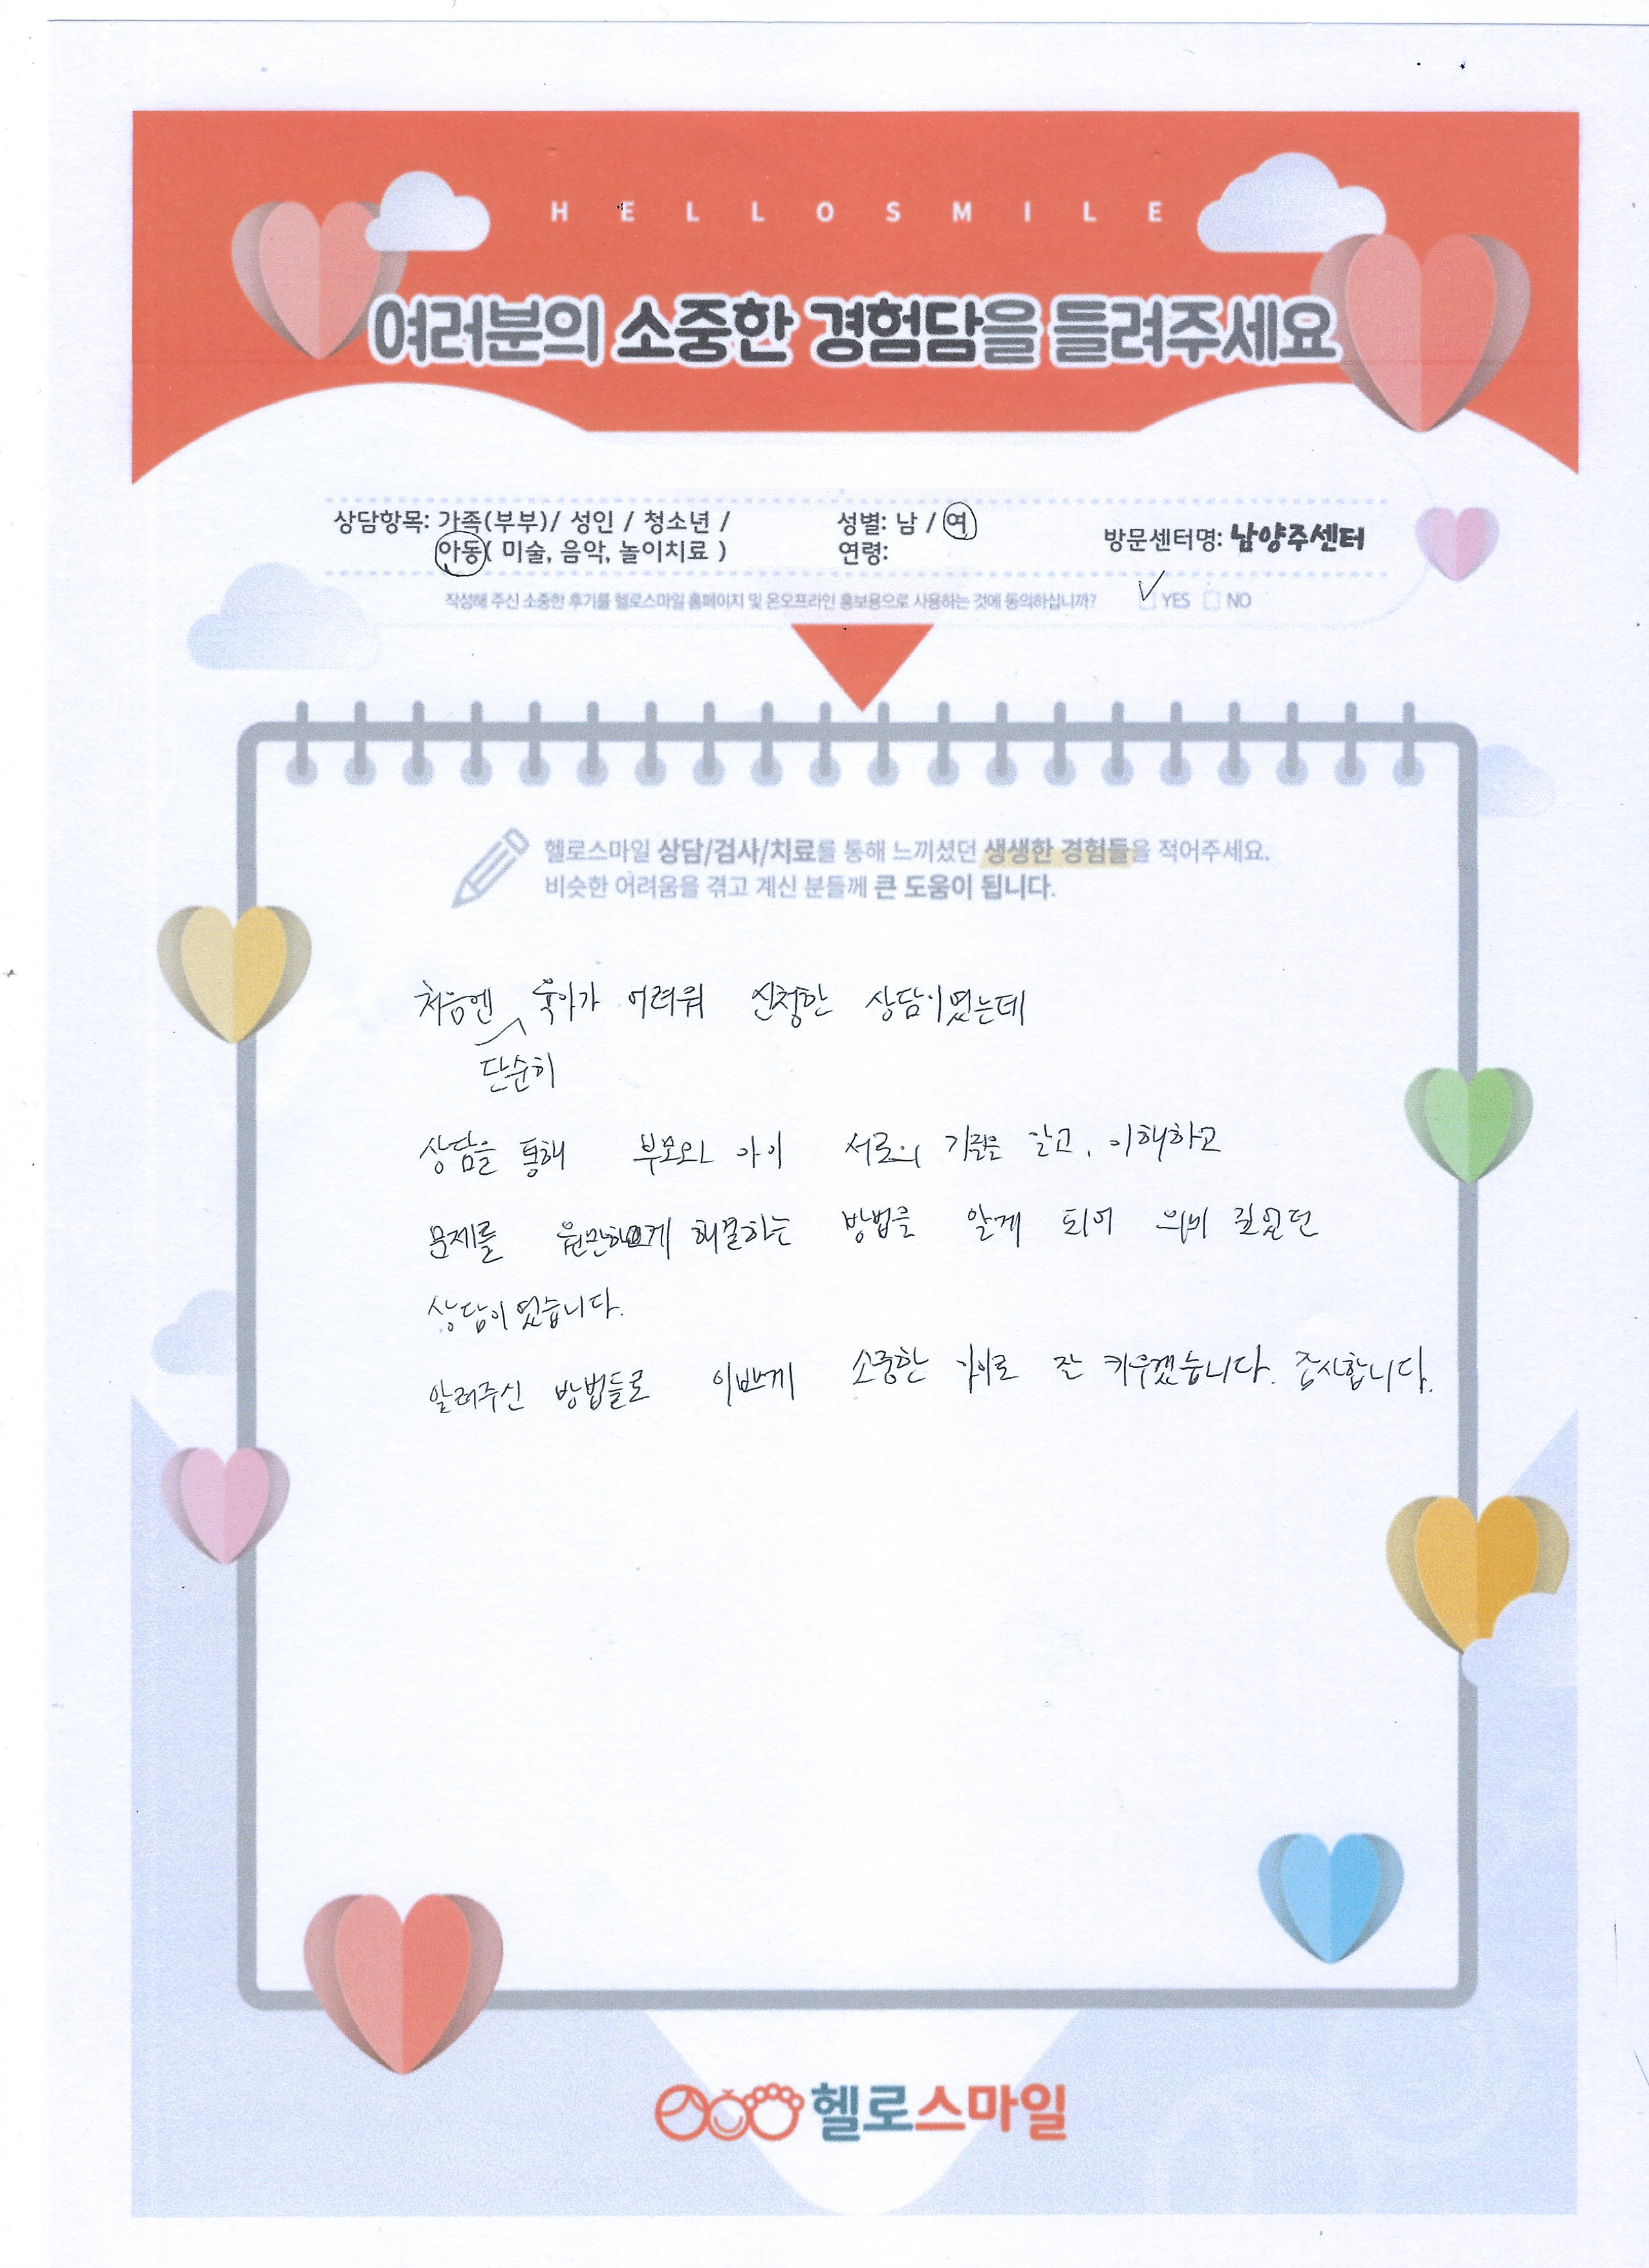 HELLOSMILE
여러분의 소중한 경험담을 들려주세요
상담항목: 가족(부부)/ 성인 / 청소년 /
아동( 미술, 음악, 놀이치료 )
성별: 남 / 여
연령:
방문센터명: 남양주센터
작성해 주신 소중한 후기를 헬로스마일 홈페이지 및 온오프라인 홍보용으로 사용하는 것에 동의하십니까? YES NO
헬로스마일 상담/검사/치료를 통해 느끼셨던 생생한 경험들을 적어주세요.
비슷한 어려움을 겪고 계신 분들께 큰 도움이 됩니다.
처음엔 육아가 어려워 신청한 상담이었는데
단순히
상담을 통해 부모와 아이 서로의 기질을 알고, 이해하고
문제를 원만하게 해결하는 방법을 알게 되어 의미 깊었던
상담이었습니다.
알려주신 방법들로 이쁘게 소중한 아이로 잘 키우겠습니다. 감사합니다.
헬로스마일